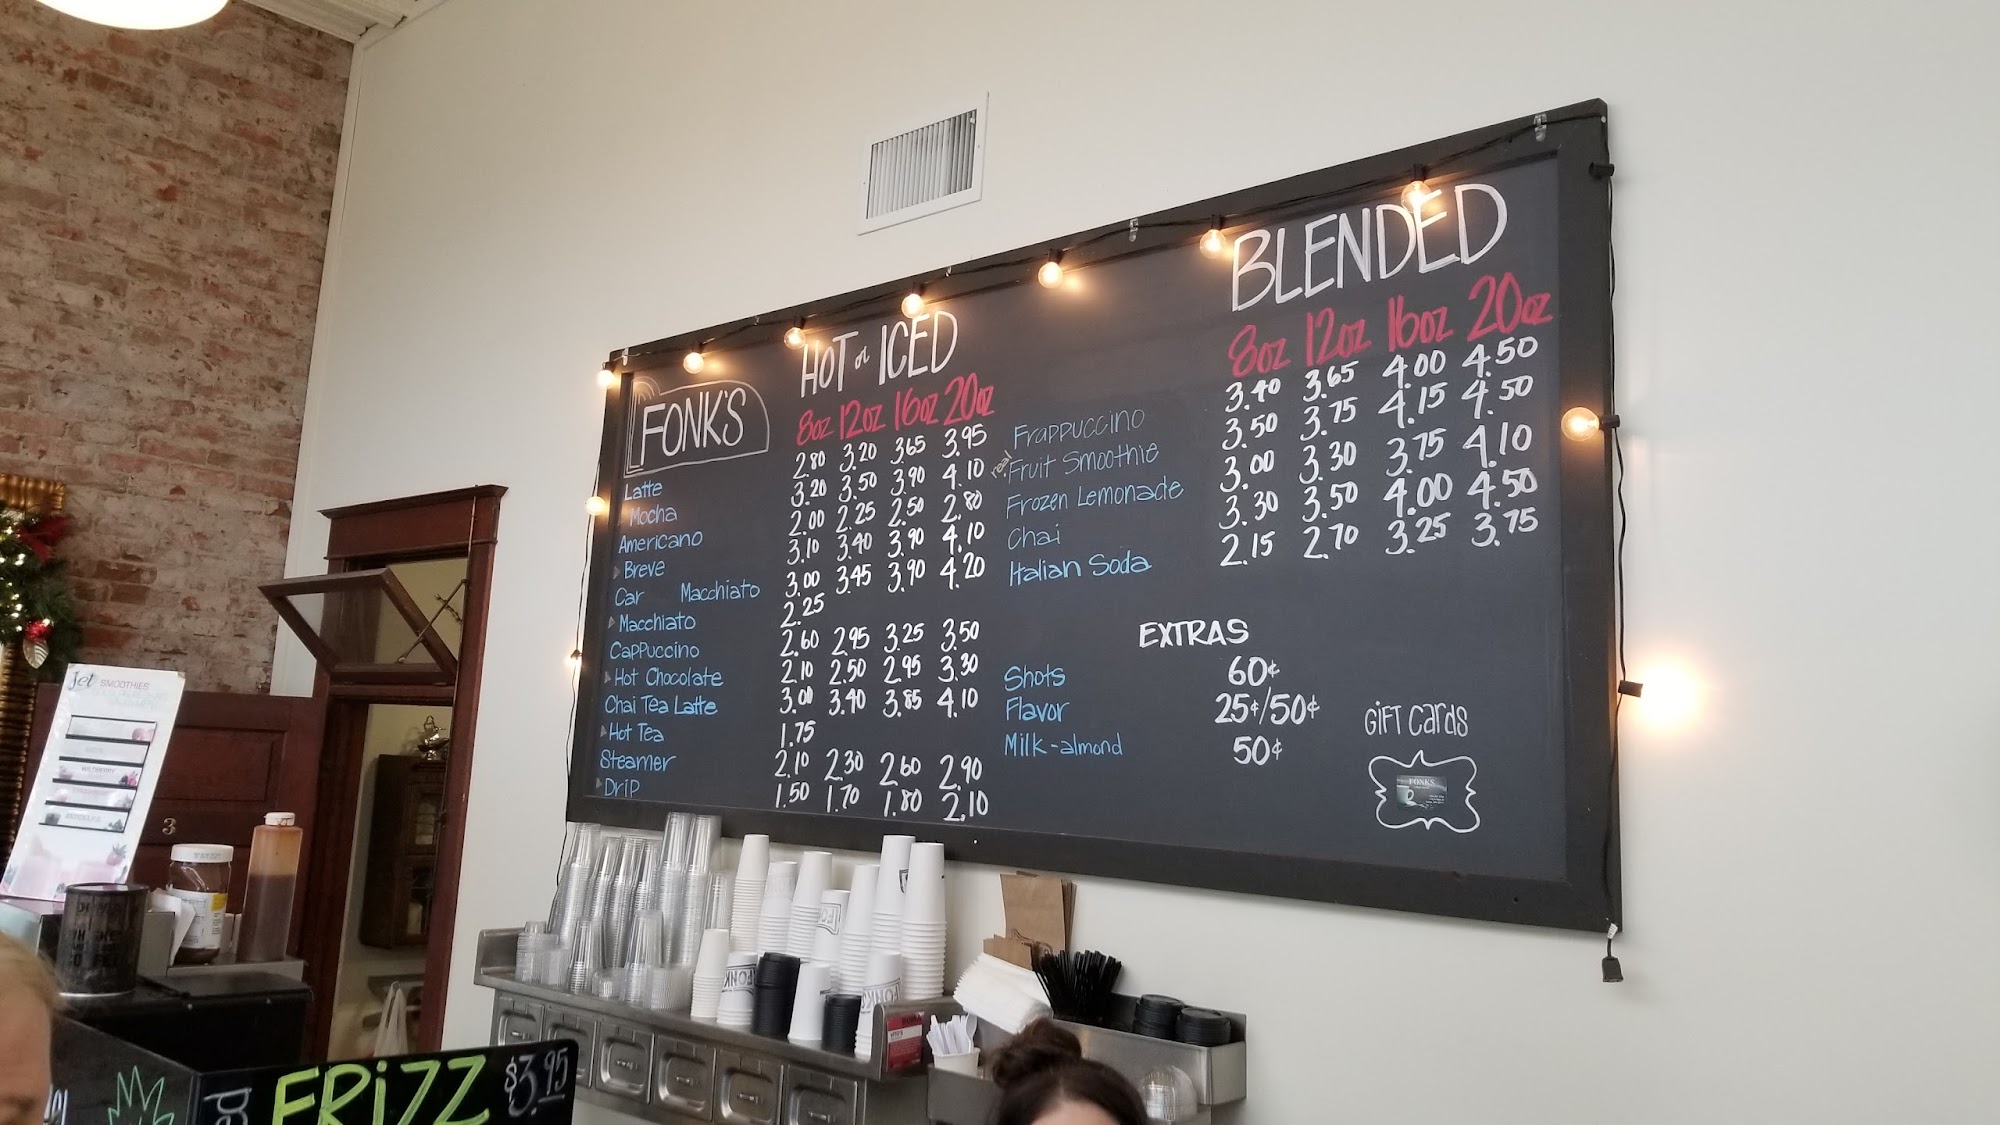 FONK'S
HOT or ICED
8oz 12oz 16oz 20oz
Latte 2.80 3.20 3.65 3.95
Mocha 3.20 3.50 3.90 4.10
Americano 2.00 2.25 2.50 2.80
Breve 3.10 3.40 3.90 4.10
Car Macchiato 3.00 3.45 3.90 4.20
Macchiato 2.25
Cappuccino 2.60 2.95 3.25 3.50
Hot Chocolate 2.10 2.50 2.95 3.30
Chai Tea Latte 3.00 3.40 3.85 4.10
Hot Tea 1.75
Steamer 2.10 2.30 2.60 2.90
Drip 1.50 1.70 1.80 2.10
BLENDED
8oz 12oz 16oz 20oz
Frappuccino 3.40 3.65 4.00 4.50
real Fruit Smoothie 3.50 3.75 4.15 4.50
Frozen Lemonade 3.00 3.30 3.75 4.10
Chai 3.30 3.50 4.00 4.50
Italian Soda 2.15 2.70 3.25 3.75
EXTRAS
Shots 60¢
Flavor 25¢/50¢
Milk-almond 50¢
GIFT CARDS
FONKS
jet SMOOTHIES
WILDBERRY
3
FONK
FRIZZ $3.95